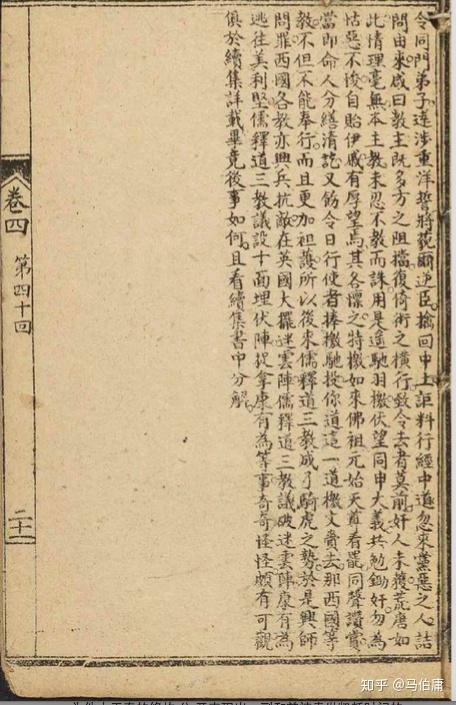 令同門弟子遠涉重洋誓將藐爾逆臣擒回中土詎料行經中道忽來黨惡之人詰
問由來咸曰教主既多方之阻擋復倚術之橫行致令去者莫前奸人未獲荒唐如
此情理毫無本主教未忍不教而誅用是遙馳羽檄伏望同申大義共勉鋤奸勿為
怙惡不悛自貽伊戚有厚望焉其各懍之特檄如來佛祖元始天尊看罷同聲讚賞
當即命人分繕清訖又飭令日行使者捧檄馳投你道這一道檄文賫去那西國等
教不但不能奉行而且更加袒護所以後來儒釋道三教成了騎虎之勢於是興師
問罪西國各教亦興兵抗敵在英國大擺迷雲陣儒釋道三教議破迷雲陣康有為
逃往美利堅儒釋道三教議設十面埋伏陣捉拿康有為等事奇奇怪怪頗有可觀
俱於續集詳載畢竟後事如何且看續集書中分解
卷四
第四十回
二十一
知乎 @馬伯庸